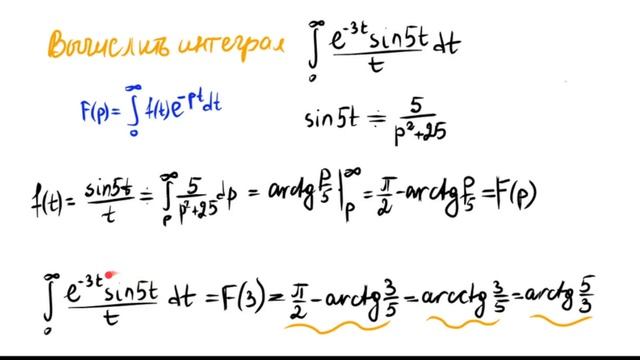 Вычислить интеграл ∫₀^∞ e^{-3t} sin5t / t dt
F(p) = ∫₀^∞ f(t) e^{-pt} dt
sin5t ≓ 5 / (p²+25)
f(t) = sin5t / t ≓ ∫_p^∞ 5 / (p²+25) dp = arctg p/5 |_p^∞ = π/2 - arctg p/5 = F(p)
∫₀^∞ e^{-3t} sin5t / t dt = F(3) = π/2 - arctg 3/5 = arcctg 3/5 = arctg 5/3